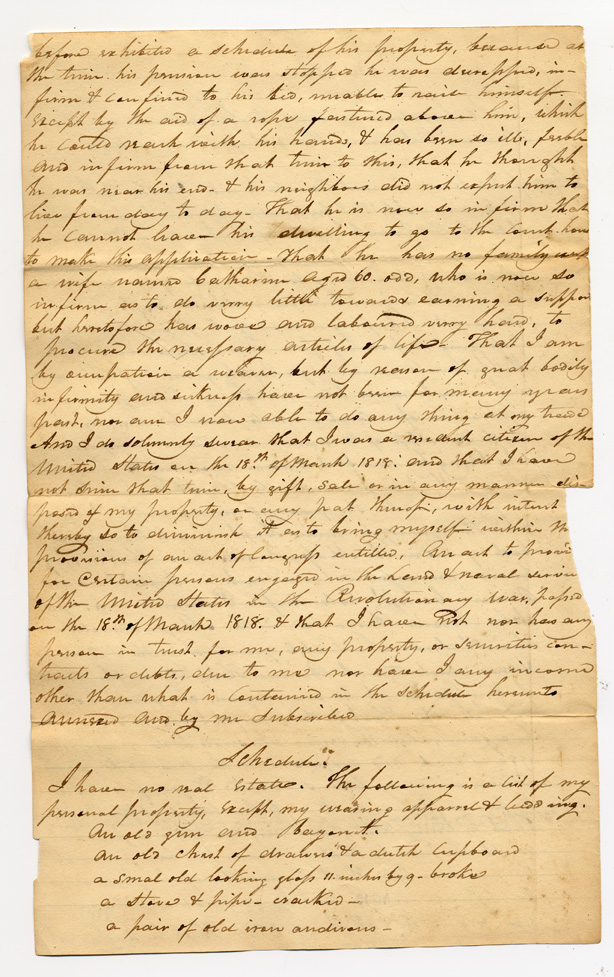 before exhibited a schedule of his property, because at
the time his pension was stopped he was decrepped, in-
firm & confined to his bed, unable to raise himself
except by the aid of a rope fastened above him, which
he could reach with his hands, & has been so ill, feeble
and infirm from that time to this, that he thought
he was near his end - & his neighbors did not expect him to
live from day to day - That he is now so infirm that
he cannot leave his dwelling to go to the court house
to make this application - That he has no family but
a wife named Catharine aged 60. odd, who is now so
infirm as to do verry little towards earning a suppo
but heretofore has wove and laboured verry hard, to
procure the necessary articles of life - That I am
by occupation a weaver, but by reason of great bodily
infirmity and sickness have not been for many years
past, nor am I now able to do any thing at my trade
And I do solemnly swear that I was a resident citizen of the
United States on the 18.th of March 1818. and that I have
not since that time, by gift, sale or in any manner dis
posed of my property, or any part thereof, with intent
thereby so to diminish it as to bring myself within the
provisions of an act of Congress entitled, An act to provi
for certain persons engaged in the land & naval servic
of the United States in the Revolutionary war, passed
on the 18.th of March 1818. & that I have not nor has any
person in trust for me, any property, or securities con-
tracts or debts, due to me nor have I any income
other than what is contained in the schedule hereunto
annexed and by me subscribed
Schedule:
I have no real Estate. The following is a list of my
personal property, Except, my wearing apparrel & bedding.
An old gun and Bayonet.
an old chest of drawers & a dutch Cupboard
a smal old looking glass 11. inches by 9 - broke
a stove & pipe - cracked -
a pair of old iron andirons -